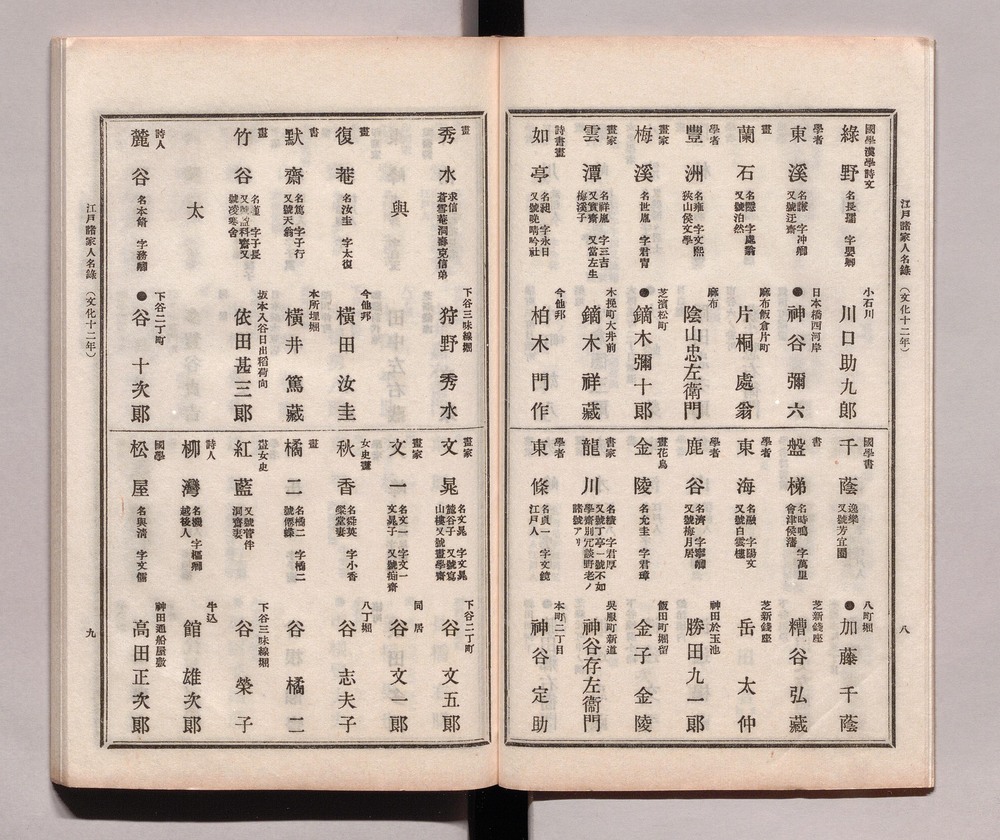 江戸諸家人名錄 (文化十二年)
八
國學漢學詩文
綠野 名長孺 字嬰卿
小石川
川口助九郎
學者
東溪 名謙 字冲卿 又號迂齋
日本橋西河岸
●神谷彌六
畫
蘭石 名隱 字處翁 又號泊然
麻布飯倉片町
●片桐處翁
學者
豐洲 名雍 字文熙 狹山侯文學
麻布
陰山忠左衞門
畫家
梅溪 名世胤 字君冑
芝濱松町
●鏑木彌十郎
畫家
雲潭 名祥胤 字三吉 又實齋 又當左生 梅溪子
木挽町大井前
鏑木祥藏
詩書畫
如亭 名昶 字永日 又號晩晴吟社
今他邦
柏木門作
國學書
千蔭 逸樂 又號芳宜園
八町堀
●加藤千蔭
書
盤梯 名時鳴 字萬里 會津侯藩
芝新錢座
糟谷弘藏
學者
東海 名融 字陽文 又號白雲樓
芝新錢座
岳太仲
學者
鹿谷 名濟 字寧卿 又號梅月居
神田於玉池
勝田九一郎
畫花鳥
金陵 名允圭 字君璋
飯田町堀留
金子金陵
書家
龍川 名績 字君厚 又號丁亭一號不如學齋別冗談野老ノ諸號アリ
吳服町新道
神谷存左衞門
學者
東條 名貞一 字文鏡 江戸人
本町二丁目
神谷定助
畫
秀水 求信 蒼雪菴洞壽克信弟
下谷三味線堀
狩野秀水
與
畫
復菴 名汝圭 字太復
今他邦
橫田汝圭
書
默齋 名篤 字子行 又號天翁
本所埋堀
橫井篤藏
畫
竹谷 名瑾 字子長 號凌寒舍
坂本入谷日出稻荷向
依田甚三郎
太
詩人
麓谷 名本脩 字務卿
下谷二丁町
●谷十次郎
畫家
文晁 名文晁 字文晁 麓谷子 又號寫山樓又號畫學齋
下谷二丁町
谷文五郎
畫家
文一 名文一 字文一 文晁子 又號痴齋
同居
谷文一郎
女史畫
秋香 名舜英 字小香 棠堂妻
八丁堀
谷志夫子
畫
橘二 名橘二 字橘二 號僊蝶
谷橘二
畫女史
紅藍 又號管伴 洞齋妻
下谷三味線堀
谷榮子
詩人
柳灣 名機 字樞卿 越後人
牛込
館雄次郎
國學
松屋 名與淸 字文儒
神田通船屋敷
高田正次郎
江戸諸家人名錄 (文化十二年)
九